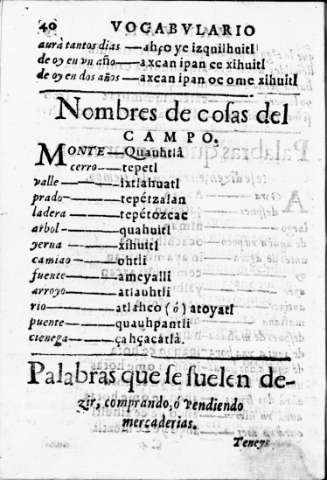 40 VOCABVLARIO
aurà tantos dias —ahço ye izquilhuitl
de oy en vn año—axcan ipan ce xihuitl
de oy en dos años—axcan ipan oc ome xihuitl
Nombres de cosas del
CAMPO.
MONTE—Quauhtlà
cerro—tepetl
valle—ixtlahuatl
prado—tepétzalan
ladera—tepétozcac
arbol—quahuitl
yerua—xihuitl
camiao—ohtli
fuente—ameyalli
arroyo—atlauhtli
rio—atlahco (ó) atoyatl
puente—quauhpantli
cienega—çahçacàtlà.
Palabras que se suelen de-
zir, comprando, ó vendiendo
mercaderias.
Teneys